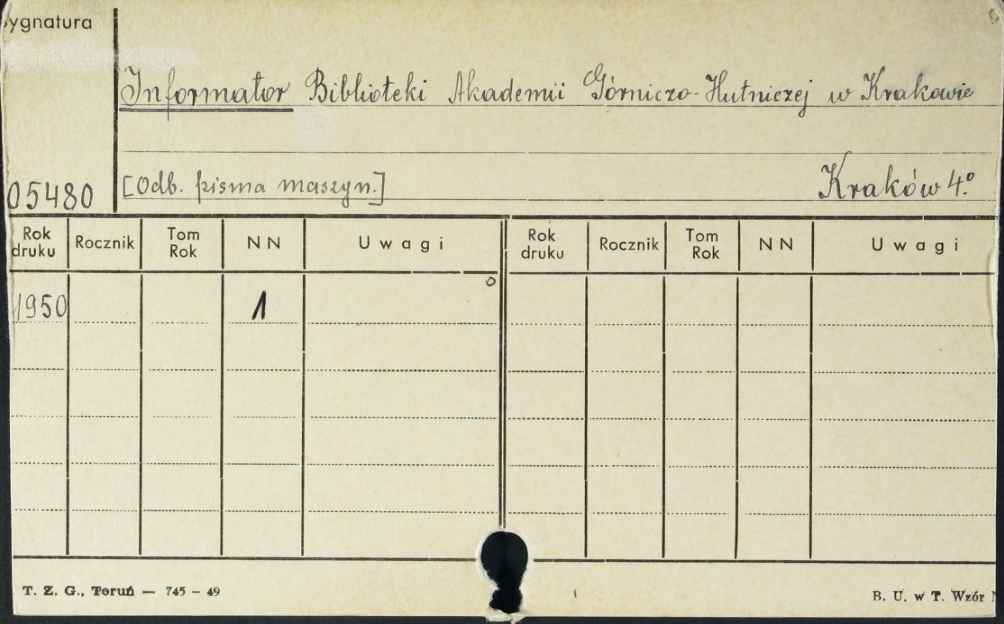 ygnatura
Informator Biblioteki Akademii Górniczo-Hutniczej w Krakowie
05480 [Odb. pisma maszyn.] Kraków 4.º
Rok druku Rocznik Tom Rok NN Uwagi Rok druku Rocznik Tom Rok NN Uwagi
1950 1
T. Z. G., Toruń — 745 - 49 B. U. w T. Wzór